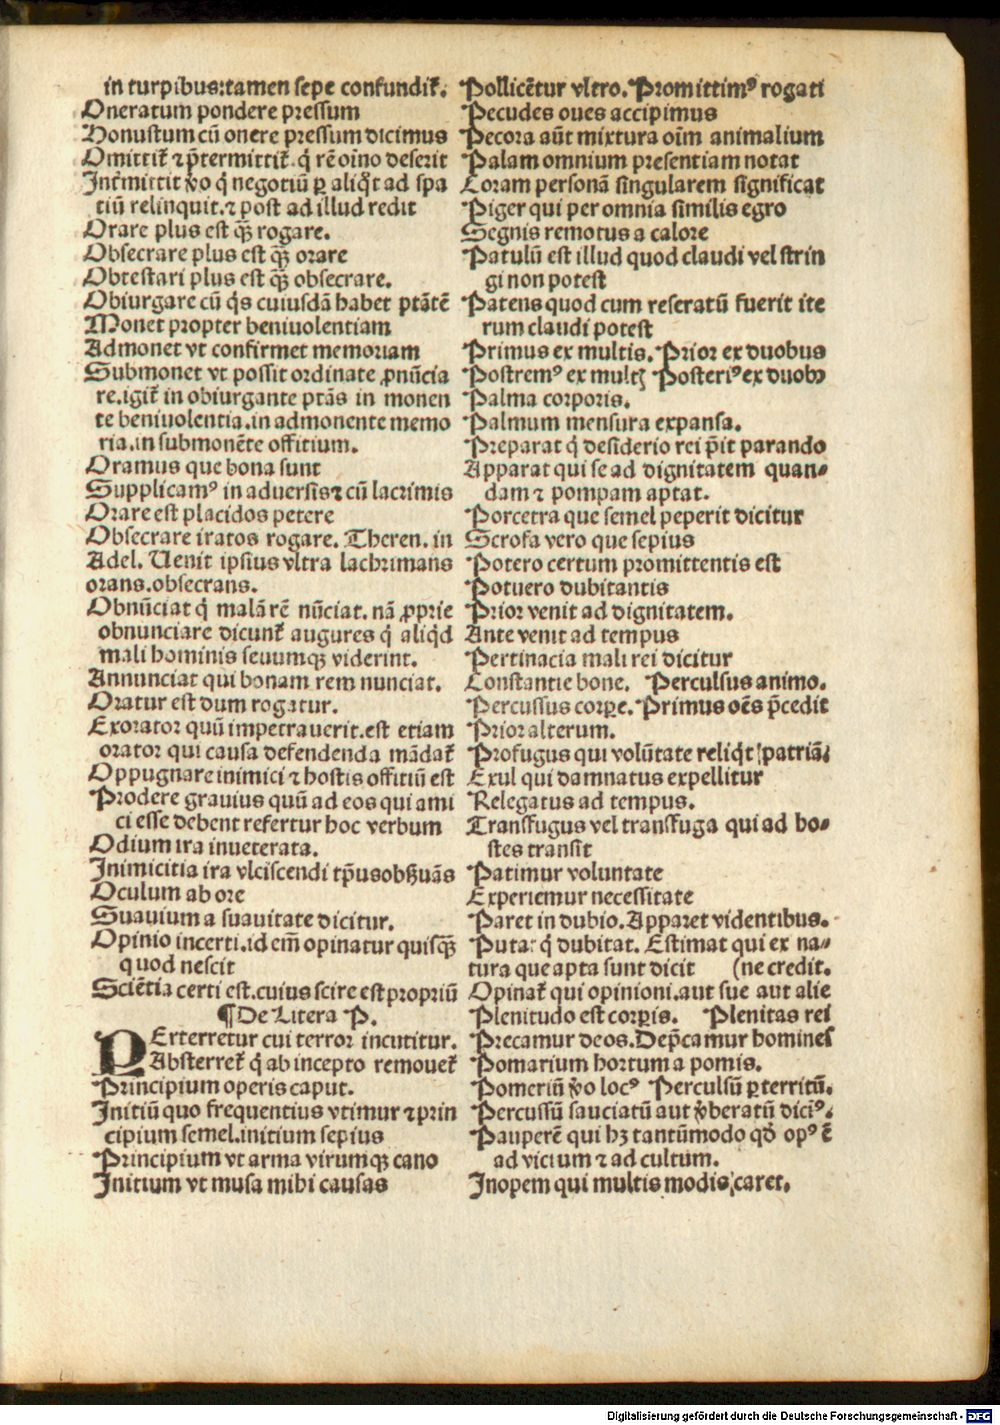 in turpibus:tamen sepe confundit̃.
Oneratum pondere pressum
Honustum cũ onere pressum dicimus
Omittit̃ ⁊ p̃termittit̃ q́ rẽ oĩno deserit
Int̃mittit ṽo q́ negotiũ ꝑ aliq́t ad spa
tiũ relinquit.⁊ post ad illud redit
Orare plus est q̃ꝫ rogare.
Obsecrare plus est q̃ꝫ orare
Obtestari plus est q̃ꝫ obsecrare.
Obiurgare cũ q́s cuiusdã habet ptãtẽ
Monet propter beniuolentiam
Admonet vt confirmet memoriam
Submonet vt possit ordinate ꝓnũcia
re.igit̃ in obiurgante ptãs in monen
te beniuolentia.in admonente memo
ria.in submonẽte offitium.
Oramus que bona sunt
Supplicamꝰ in aduersis⁊ cũ lacrimis
Orare est placidos petere
Obsecrare iratos rogare. Theren. in
Adel. Uenit ipsius vltra lachrimans
orans.obsecrans.
Obnũciat q́ malã rẽ nũciat. nã ꝓprie
obnunciare dicunt̃ augures q́ aliq́d
mali hominis seuumqꝫ viderint.
Annunciat qui bonam rem nunciat.
Oratur est dum rogatur.
Exorator quũ impetrauerit.est etiam
orator qui causa defendenda mãdat̃
Oppugnare inimici ⁊ hostis offitiũ est
Prodere grauius quũ ad eos qui ami
ci esse debent refertur hoc verbum
Odium ira inueterata.
Inimicitia ira vlciscendi tp̃usobẞuãs
Oculum ab ore
Suauium a suauitate dicitur.
Opinio incerti.id em̃ opinatur quisq̃ꝫ
quod nescit
Sciẽtia certi est.cuius scire est propriũ
¶ De Litera P.
PErterretur cui terror incutitur.
Absterret̃ q́ ab incepto remouet̃
Principium operis caput.
Initiũ quo frequentius vtimur ⁊ prin
cipium semel.initium sepius
Principium vt arma virumqꝫ cano
Initium vt musa mihi causas
Pollicẽtur vltro. Promittimꝰ rogati
Pecudes oues accipimus
Pecora aũt mixtura oĩm animalium
Palam omnium presentiam notat
Coram personã singularem significat
Piger qui per omnia similis egro
Segnis remotus a calore
Patulũ est illud quod claudi vel strin
gi non potest
Patens quod cum reseratũ fuerit ite
rum claudi potest
Primus ex multis. Prior ex duobus
Postremꝰ ex multꝭ Posteriꝰ ex duobꝫ
Palma corporis.
Palmum mensura expansa.
Preparat q́ desiderio rei p̃it parando
Apparat qui se ad dignitatem quan-
dam ⁊ pompam aptat.
Porcetra que semel peperit dicitur
Scrofa vero que sepius
Potero certum promittentis est
Potuero dubitantis
Prior venit ad dignitatem.
Ante venit ad tempus
Pertinacia mali rei dicitur
Constantie bone. Perculsus animo.
Percussus corꝑe. Primus oẽs p̃cedit
Prior alterum.
Profugus qui volũtate reliq́t patriã;
Exul qui damnatus expellitur
Relegatus ad tempus.
Transfugus vel transfuga qui ad ho-
stes transit
Patimur voluntate
Experiemur necessitate
Paret in dubio. Apparet videntibus.
Putat q́ dubitat. Estimat qui ex na-
tura que apta sunt dicit (ne credit.
Opinat̃ qui opinioni.aut sue aut alie
Plenitudo est corꝑis. Plenitas rei
Precamur deos.Dep̃camur homines
Pomarium hortum a pomis.
Pomeriũ ṽo locꝰ Perculsũ ꝑterritũ.
Percussũ sauciatũ aut ṽberatũ diciꝰ.
Pauperẽ qui hꝫ tantũmodo qđ opꝰ ẽ
ad victum ⁊ ad cultum.
Inopem qui multis modis caret.
Digitalisierung gefördert durch die Deutsche Forschungsgemeinschaft - DFG